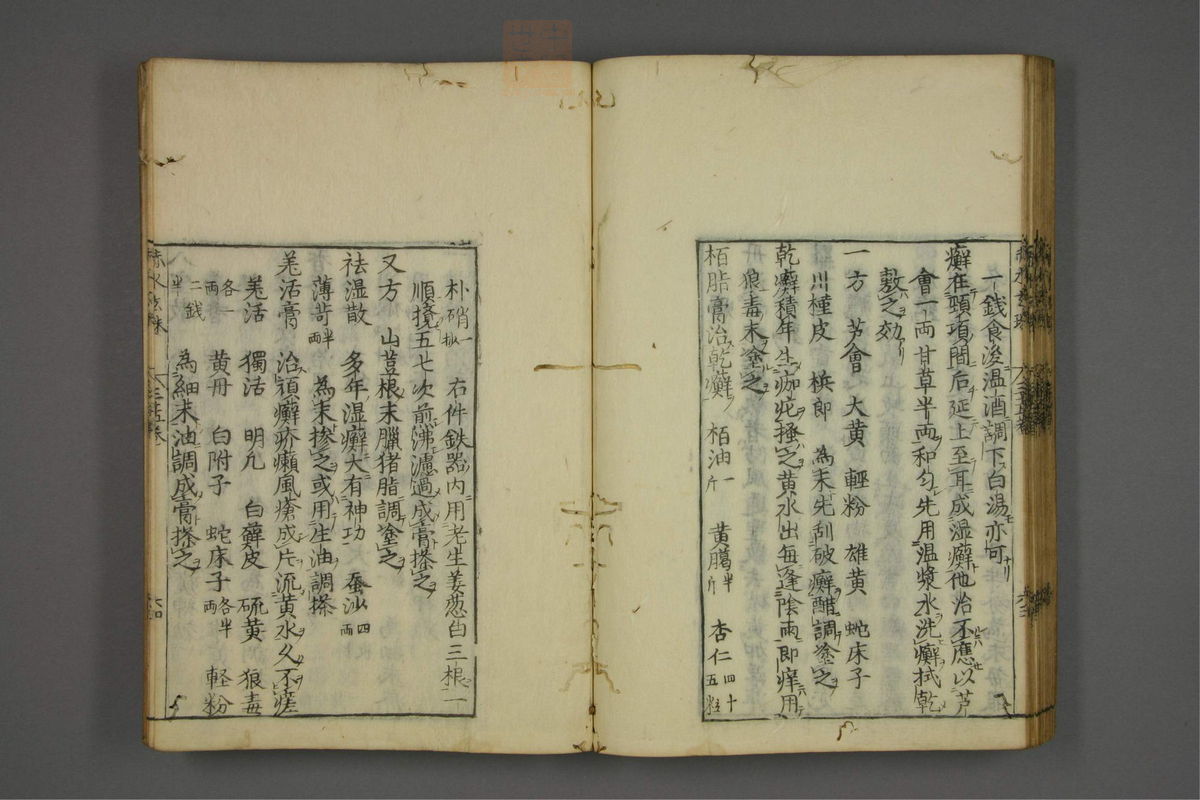 一錢食後温酒調下白湯亦可
癬在頸項間后延上至耳成湿癬他治不應以芦
會一両甘草半両和匀先用温漿水洗癬拭乾
敷之効
一方　芦會　大黄　輕粉　雄黄　蛇床子
川槿皮　梹郎　為末先刮破癬醋調塗之
乾癬積年生痂疕搔之黄水出毎逢陰雨即痒用
狼毒末塗之
栢脂膏治乾癬　栢油一斤　黄䐶半斤　杏仁四十五粒
朴硝一撮　右件鉄器内用老生姜葱白三根一
順攪五七次煎沸濾過成膏搽之
又方　山荳根末臘猪脂調塗之
祛湿散　多年湿癬大有神功　蚕沙四両
薄苛半両　為末摻之或用生油調搽
羗活膏　治頑癬疥癩風瘡成片流黄水久不瘥
羗活　獨活　明凢　白蘚皮　硫黄　狼毒
各一両　黄丹　白附子　蛇床子各半両　軽粉
二銭半　為細末油調成膏搽之
赤水玄珠
六十四